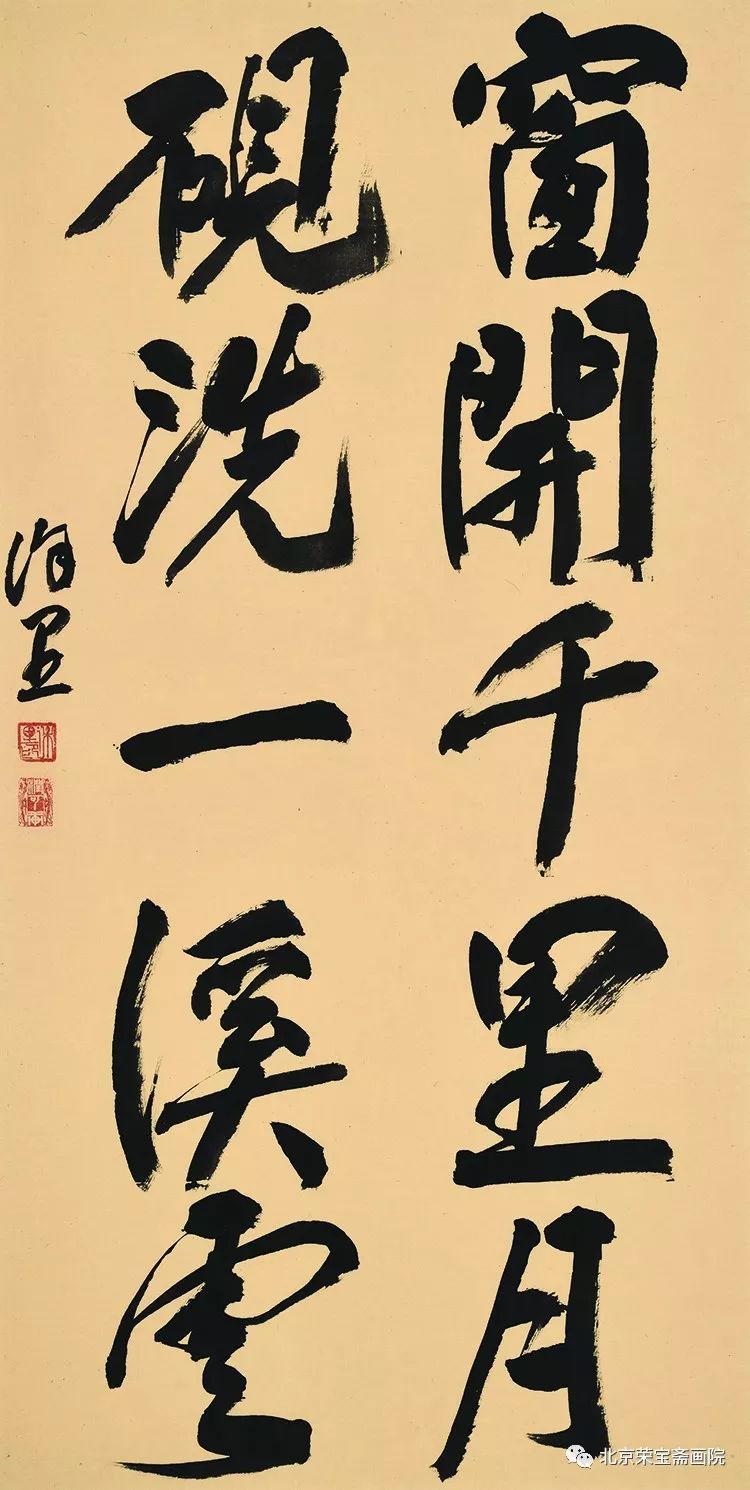 窗開千里月
硯洗一溪雲
北京荣宝斋画院